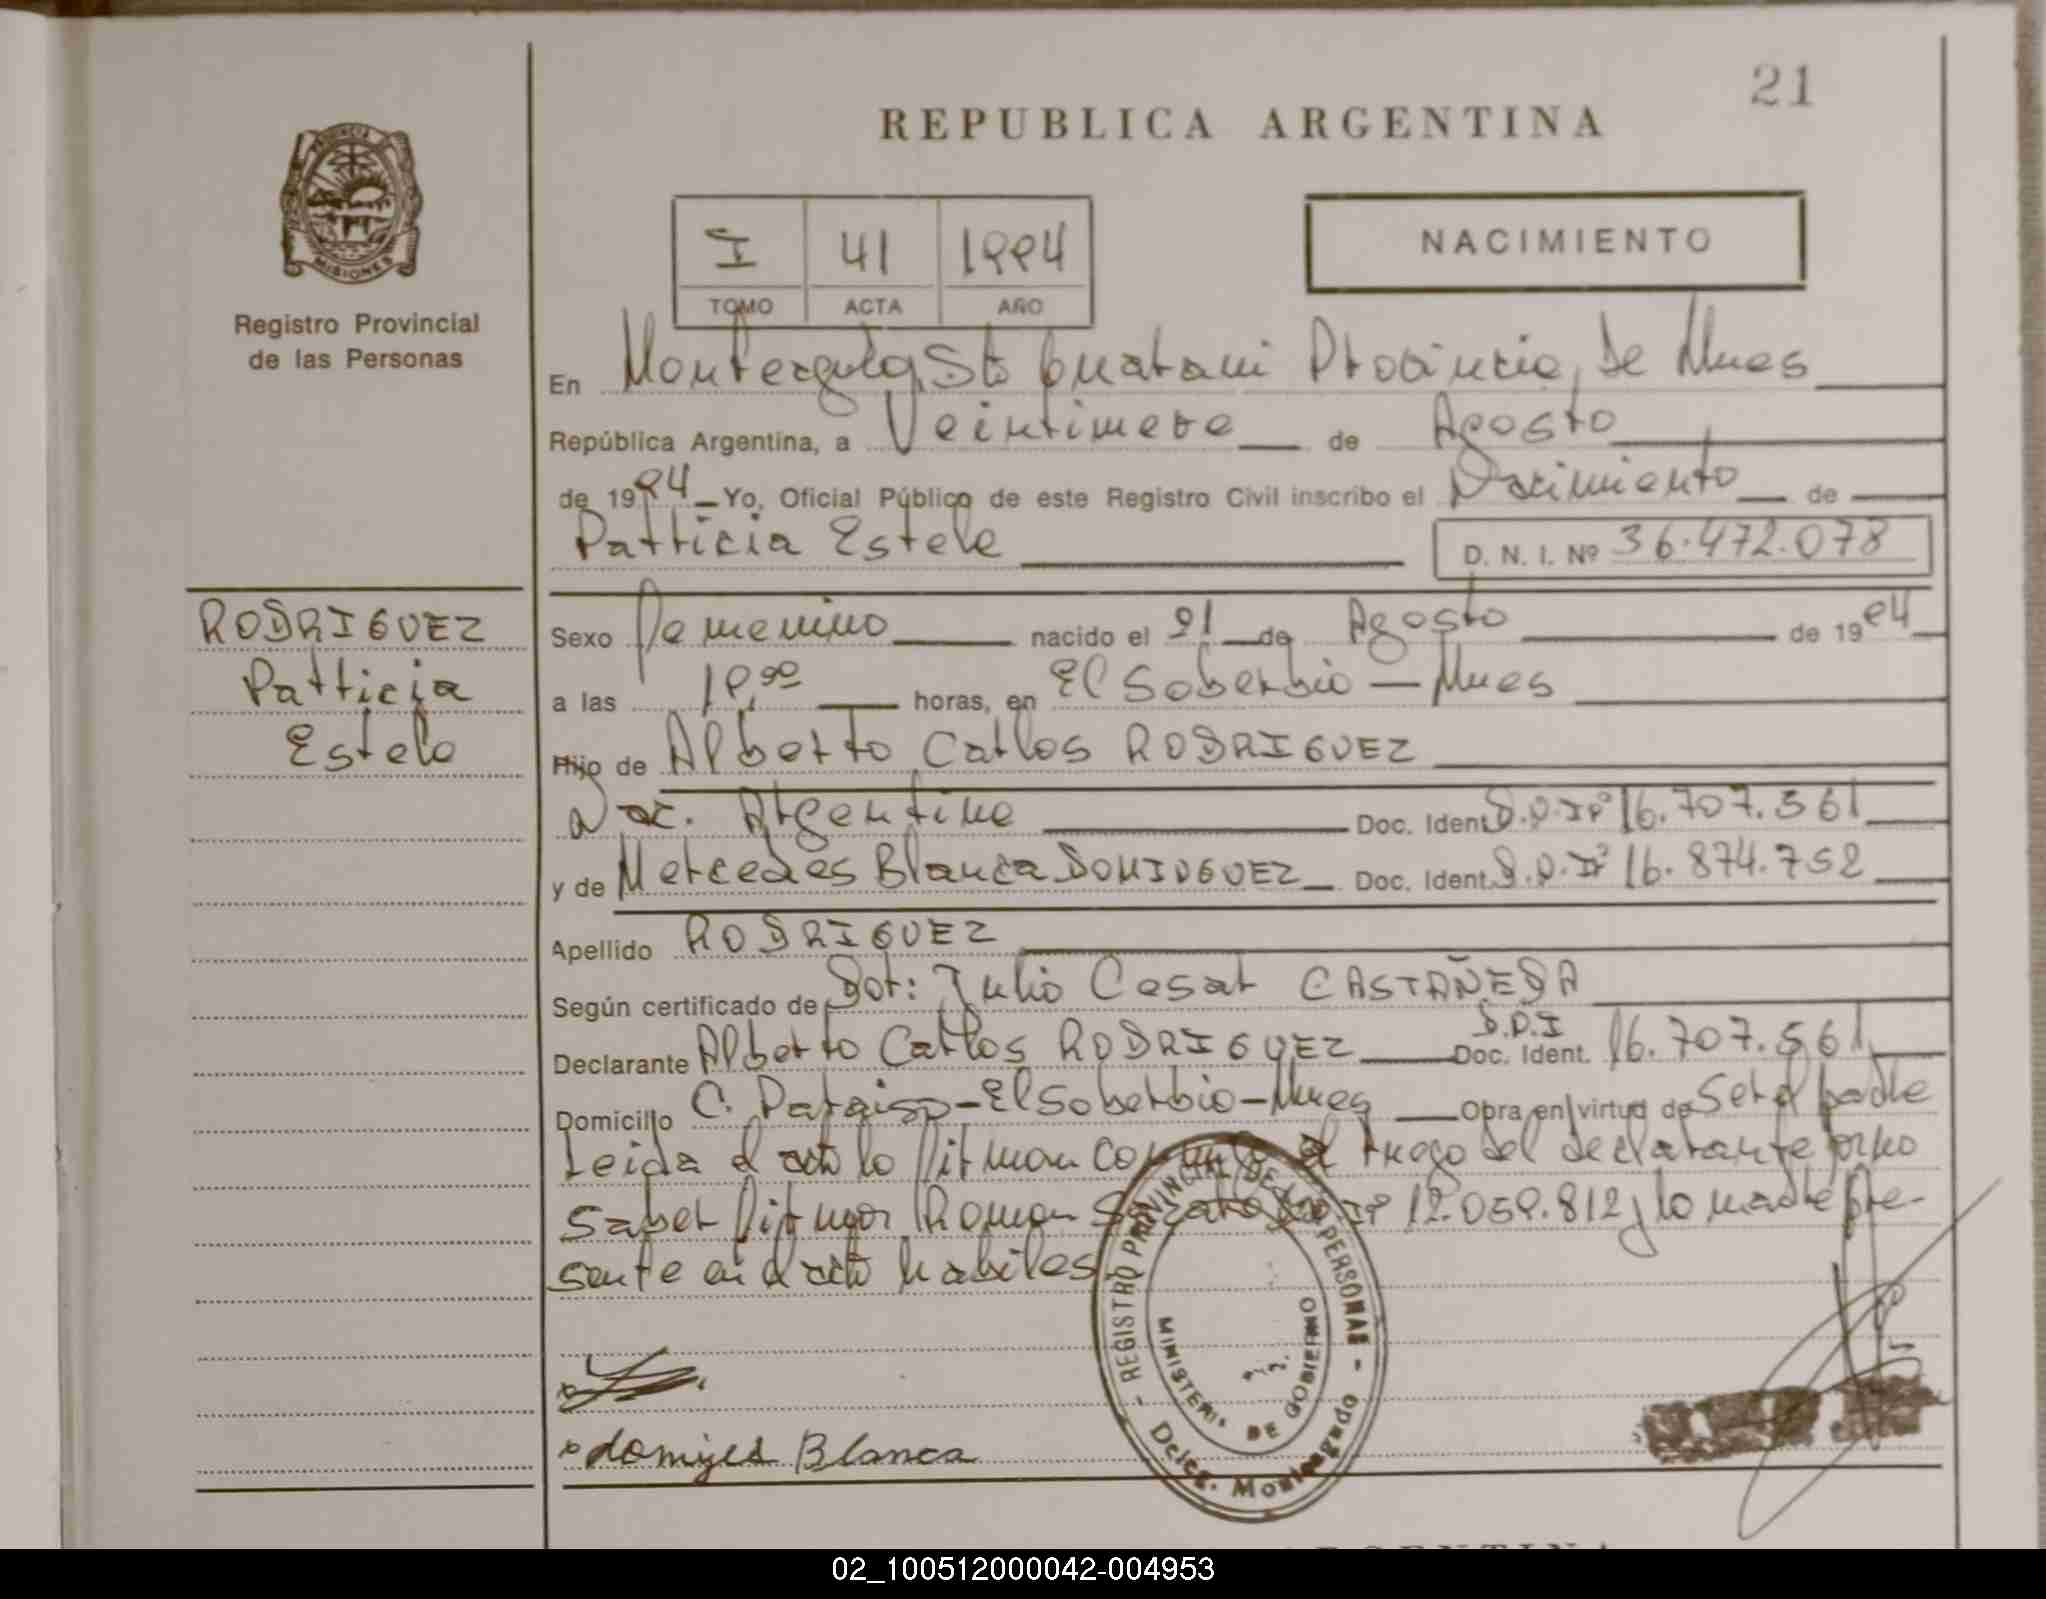 21
REPUBLICA ARGENTINA
PROVINCIA
MISIONES
I 41 1994
TOMO ACTA AÑO
NACIMIENTO
Registro Provincial
de las Personas
En Monteagudo, Dto Guarani Provincia, de Mnes
República Argentina, a Veintinueve de Agosto
de 1994 Yo, Oficial Público de este Registro Civil inscribo el Nacimiento de
Patricia Estela
D. N. I. Nº 36.472.078
RODRIGUEZ
Patricia
Estela
Sexo Femenino nacido el 21 de Agosto de 1994
a las 19,00 horas, en El Soberbio - Mnes
Hijo de Alberto Carlos RODRIGUEZ
Nac. Argentina Doc. Ident. D.N.Iº 16.707.561
y de Mercedes Blanca DOMINGUEZ Doc. Ident. D.N.Iº 16.874.752
Apellido RODRIGUEZ
Según certificado de Dor: Julio Cesar CASTAÑEDA
Declarante Alberto Carlos RODRIGUEZ Doc. Ident. D.N.I 16.707.561
Domicilio C. Paraiso - El Soberbio - Mnes Obra en virtud de Ser el padre
Leida el acta la firman a ruego del declarante por no
saber firmar Roman D.N.Iº 12.059.812 y la madre pre-
sente en el acto habiles
Blanca
- REGISTRO PROVINCIAL DE LAS PERSONAS -
MINISTERIO DE GOBIERNO
Deleg. Monteagudo
ARGENTINA
02_100512000042-004953